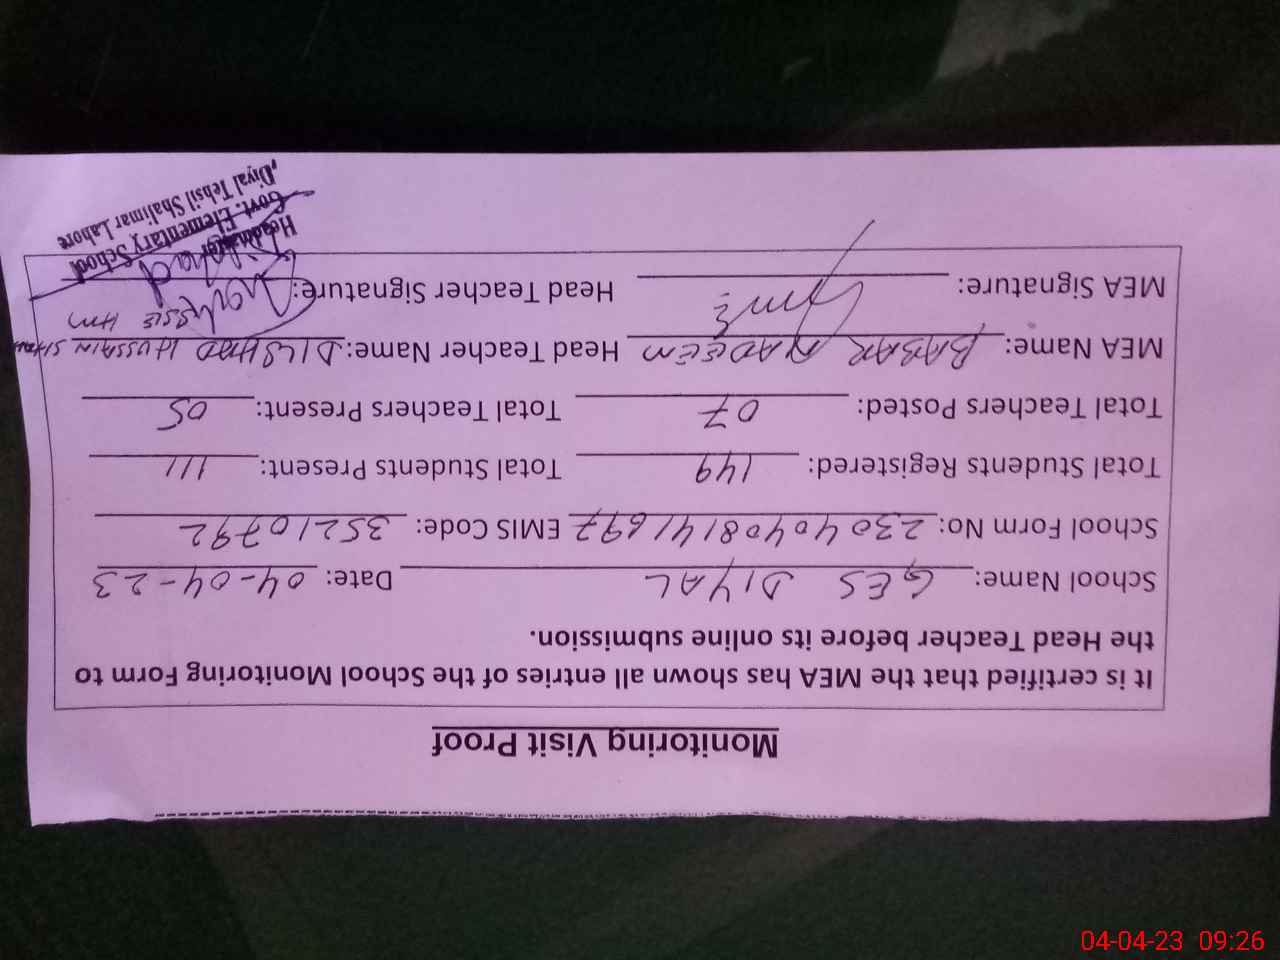 Monitoring Visit Proof
It is certified that the MEA has shown all entries of the School Monitoring Form to
the Head Teacher before its online submission.
School Name: GES DIYAL Date: 04-04-23
School Form No: 23040408141697 EMIS Code: 35210792
Total Students Registered: 149 Total Students Present: 111
Total Teachers Posted: 07 Total Teachers Present: 05
MEA Name: BABAR NADEEM Head Teacher Name: DILSHAD HUSSAIN
SSIE HM
MEA Signature: Head Teacher Signature:
Headmaster
Govt. Elementary School
Diyal Tehsil Shalimar Lahore
04-04-23 09:26